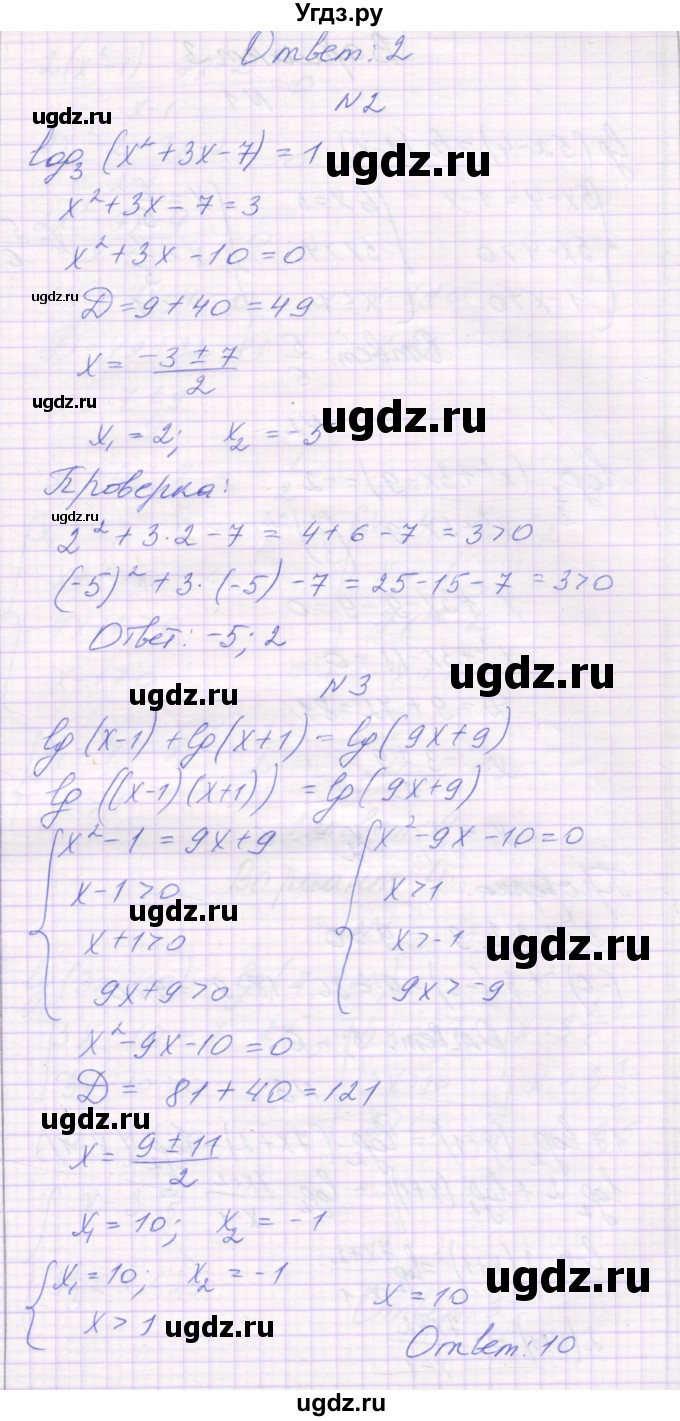 Угдз.ру
Ответ: 2
ugdz.ru
N2
log₃ (x² + 3x - 7) = 1
ugdz.ru
x² + 3x - 7 = 3
x² + 3x - 10 = 0
ugdz.ru
D = 9 + 40 = 49
x = (-3 ± 7)/2
ugdz.ru
ugdz.ru
x₁ = 2; x₂ = -5
Проверка:
ugdz.ru
2² + 3·2 - 7 = 4 + 6 - 7 = 3 > 0
(-5)² + 3·(-5) - 7 = 25 - 15 - 7 = 3 > 0
Ответ: -5; 2
ugdz.ru
ugdz.ru
N3
lg (x-1) + lg (x+1) = lg (9x+9)
lg ((x-1)(x+1)) = lg (9x+9)
{ x² - 1 = 9x + 9 { x² - 9x - 10 = 0
x - 1 > 0 x > 1
ugdz.ru
x + 1 > 0 x > -1
ugdz.ru
9x + 9 > 0 9x > -9
x² - 9x - 10 = 0
D = 81 + 40 = 121
ugdz.ru
x = (9 ± 11)/2
x₁ = 10; x₂ = -1
{ x₁ = 10; x₂ = -1 x = 10
ugdz.ru
x > 1
ugdz.ru
Ответ: 10
ugdz.ru